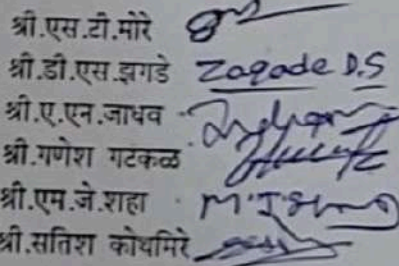 श्री.एस.टी.मोरे
श्री.डी.एस.झगडे Zagade D.S
श्री.ए.एन.जाधव
श्री.गणेश गटकळ
श्री.एम.जे.शहा M.J.Shah
श्री.सतिश कोथमिरे